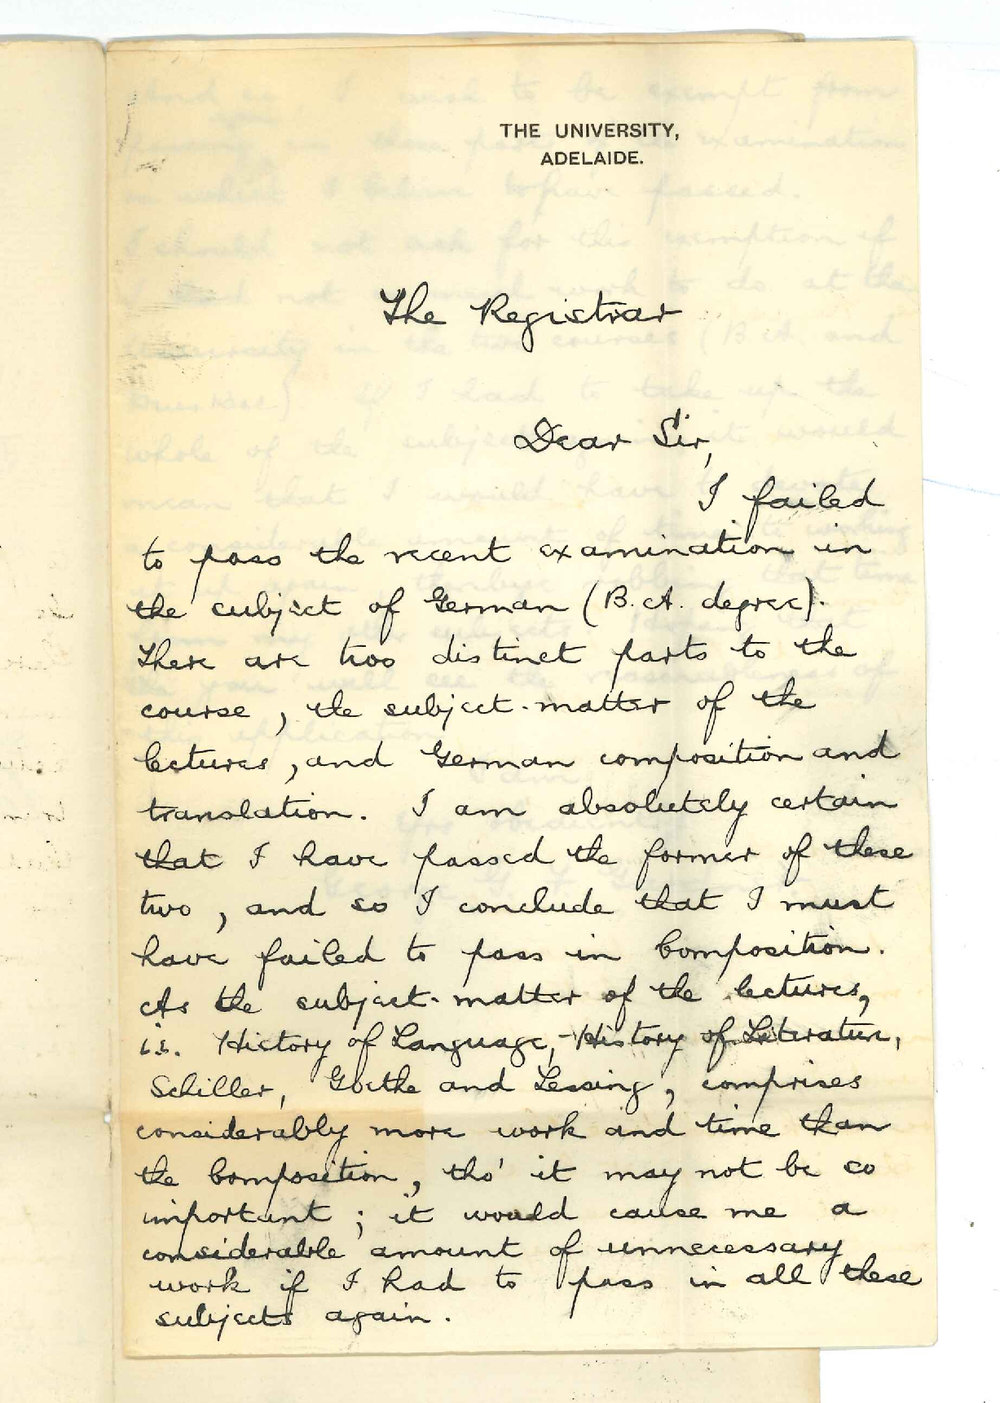 THE UNIVERSITY,
ADELAIDE.
The Registrar
Dear Sir,
I failed
to pass the recent examination in
the subject of German (B.A. degree).
There are two distinct parts to the
course, the subject-matter of the
lectures, and German composition and
translation. I am absolutely certain
that I have passed the former of these
two, and so I conclude that I must
have failed to pass in Composition.
As the subject-matter of the lectures,
i.e. History of Language, History of Literature,
Schiller, Goethe and Lessing, comprises
considerably more work and time than
the Composition, tho' it may not be so
important; it would cause me a
considerable amount of unnecessary
work if I had to pass in all these
subjects again.